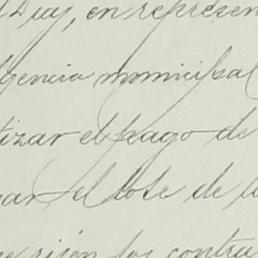 Diaz, en represen
gencia municipal
tizar el pago de
ar el lote de
que rijen los contra